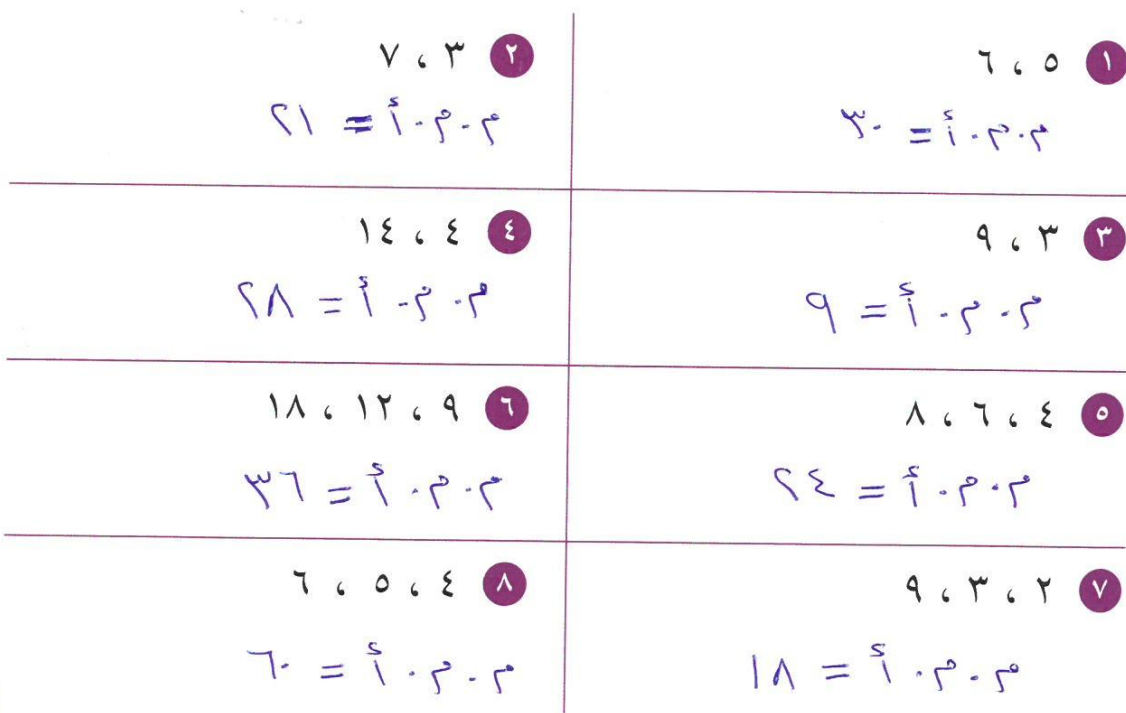 ١ ٥ ، ٦
م.م.أ = ٣٠
٢ ٣ ، ٧
م.م.أ = ٢١
٣ ٣ ، ٩
م.م.أ = ٩
٤ ٤ ، ١٤
م.م.أ = ٢٨
٥ ٤ ، ٦ ، ٨
م.م.أ = ٢٤
٦ ٩ ، ١٢ ، ١٨
م.م.أ = ٣٦
٧ ٢ ، ٣ ، ٩
م.م.أ = ١٨
٨ ٤ ، ٥ ، ٦
م.م.أ = ٦٠